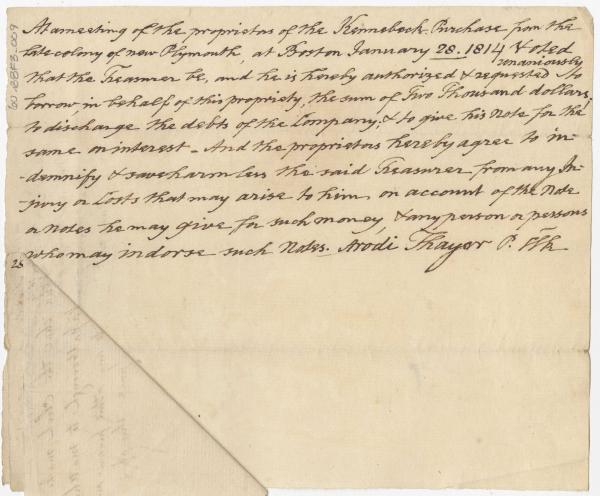 At a meeting of the proprietors of the Kennebeck Purchase from the
late colony of new Plymouth, at Boston January 28. 1814 Voted
unaniously
that the Treasurer be, and he is hereby authorized & requested to
borrow, in behalf of this propriety, the sum of Two Thousand dollars,
to discharge the debts of the Company, & to give his Note for the
same on interest - And the proprietors hereby agree to in-
-demnify & save harmless the said Treasurer from any In-
-jury or Costs that may arise to him on account of the Note
or notes he may give for such money, & any person or persons
who may indorse such Notes. Arodi Thayer P. Clk
28